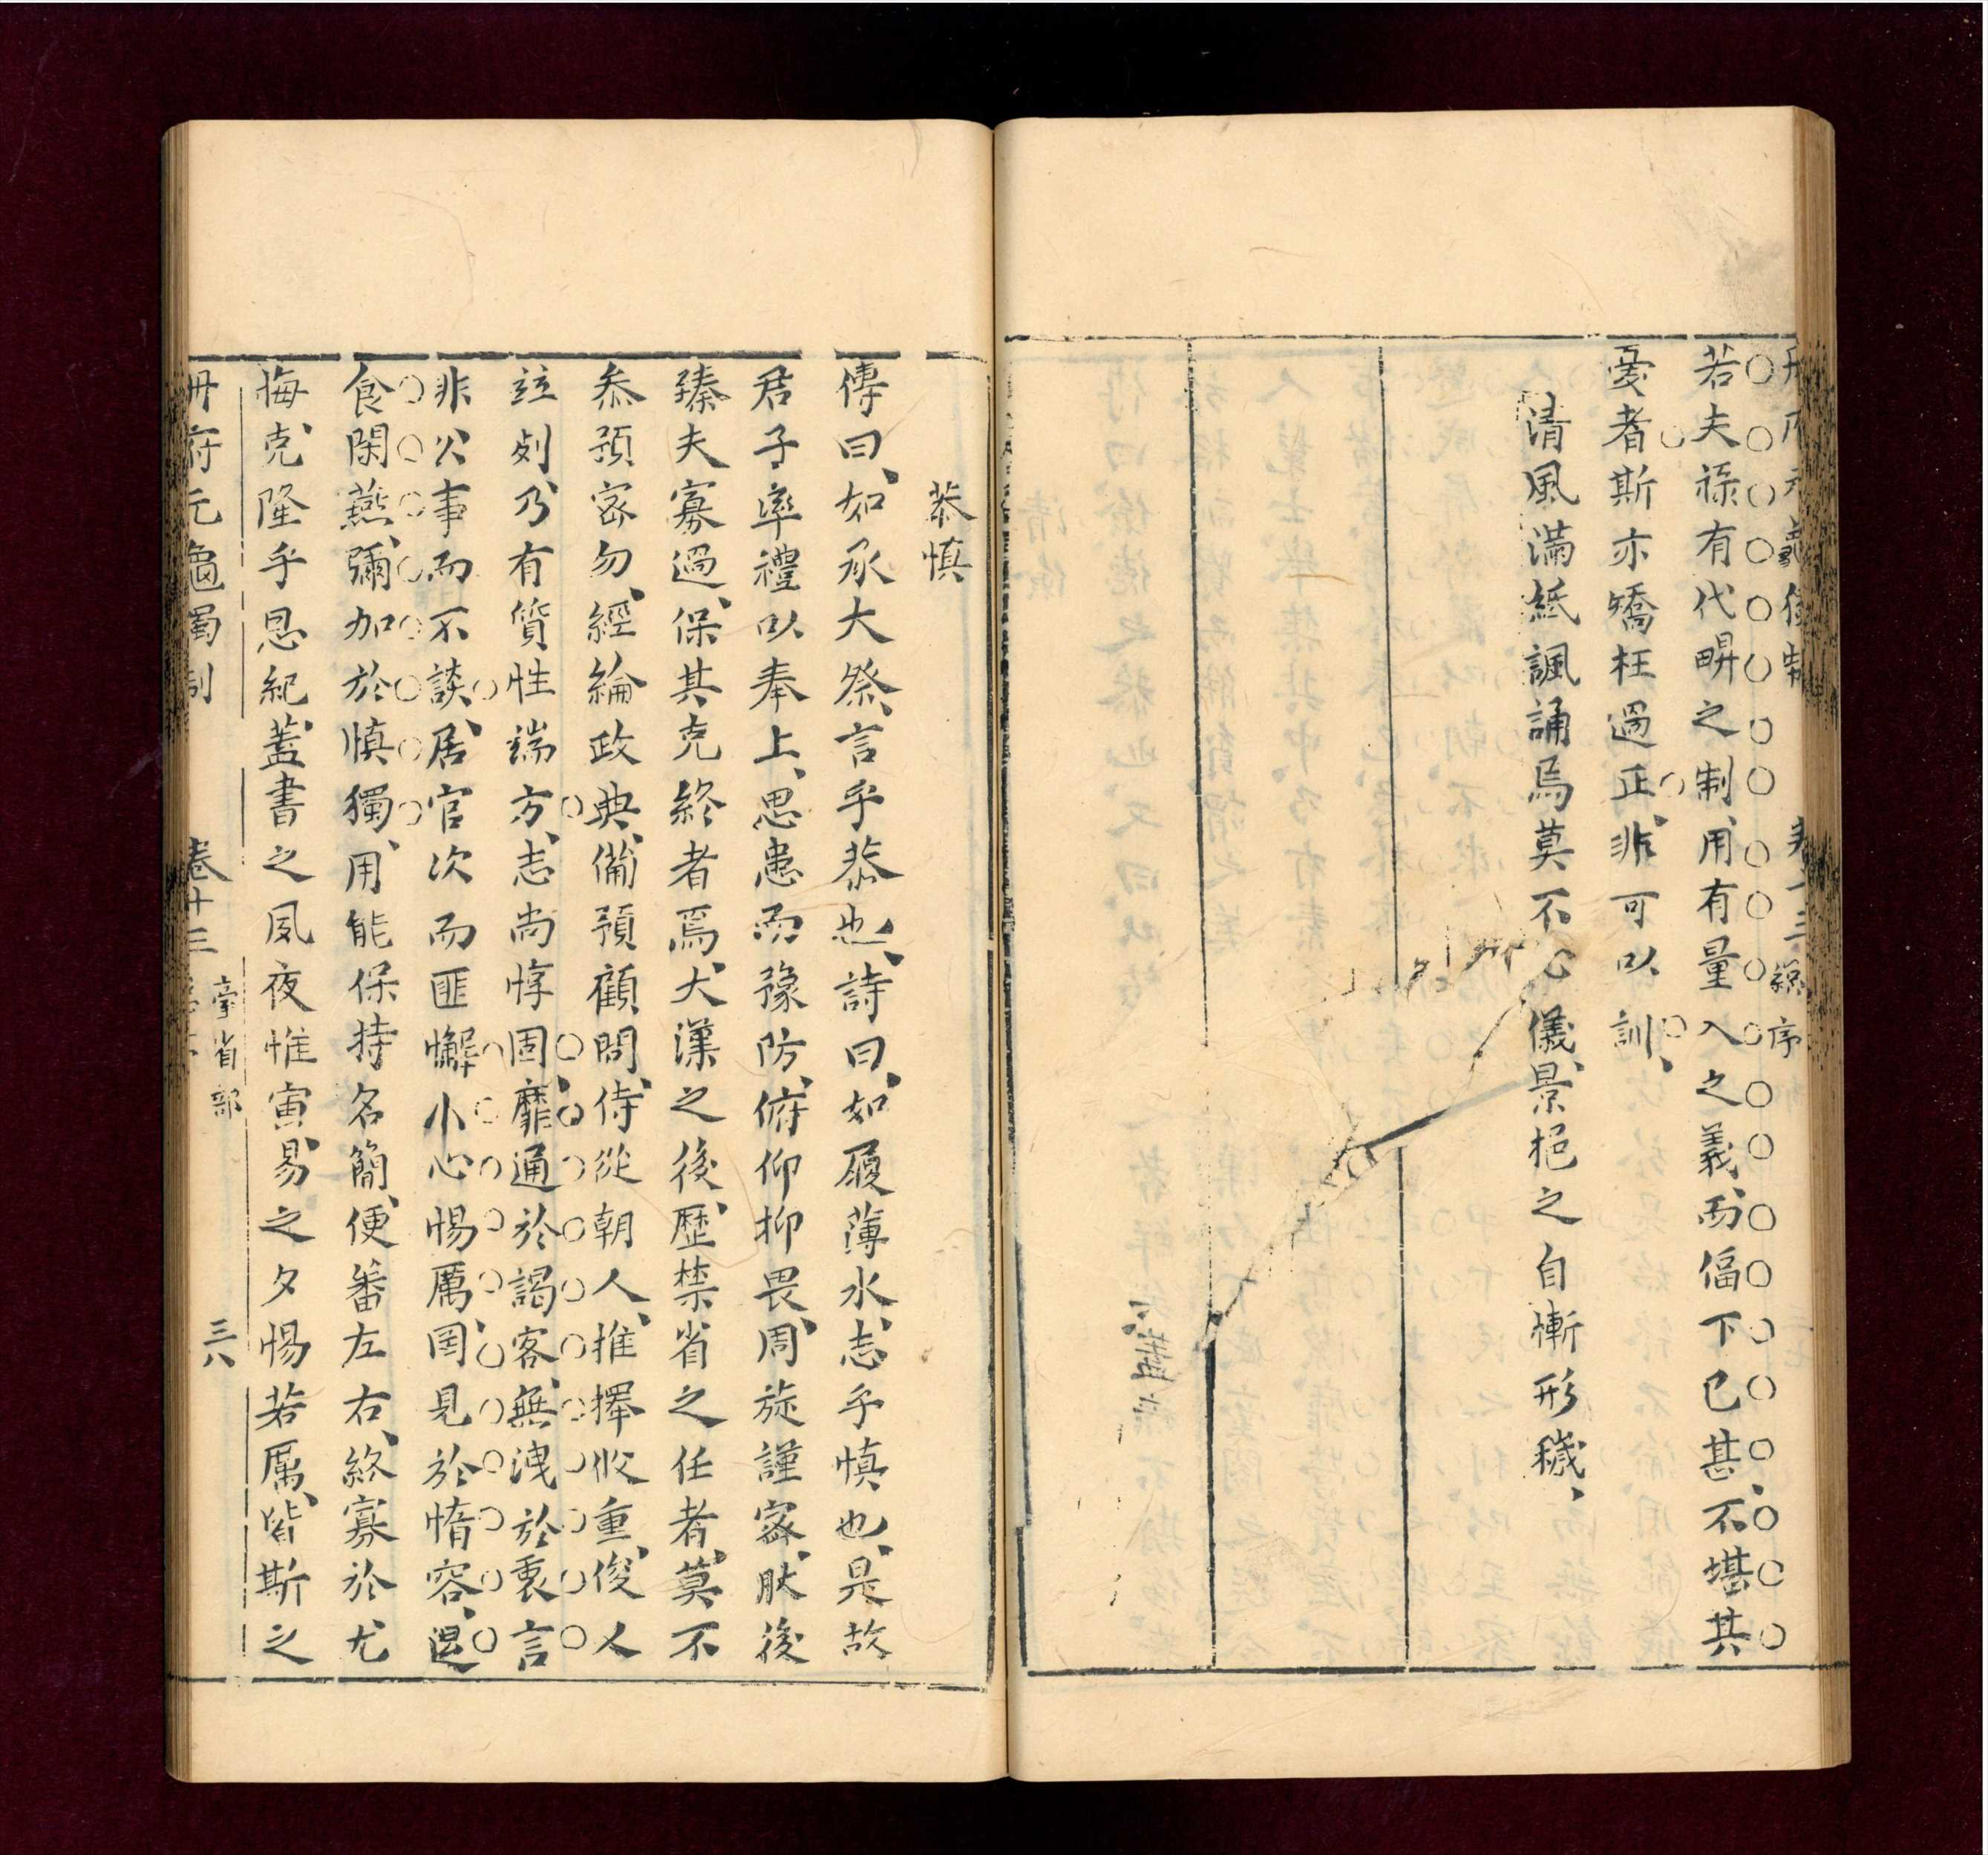 若夫祿有代畊之制用有量入之義而偪下已甚不堪其
憂者斯亦矯枉過正非可以訓
清風滿紙諷誦焉莫不心儀景挹之自慚形穢
恭慎
傳曰如承大祭言乎恭也詩曰如履薄氷志乎慎也是故
君子率禮以奉上思患而豫防俯仰抑畏周旋謹密肰後
臻夫寡過保其克終者焉大漢之後歷禁省之任者莫不
叅預密勿經綸政典備預顧問侍從朝人推擇攸重俊人
竝列乃有質性端方志尚惇固靡通於謁客無洩於裏言
非公事而不談居官次而匪懈小心惕厲罔見於惰容退
食閑燕彌加於慎獨用能保持名簡便蕃左右終寡於尤
悔克隆乎恩紀蓋書之夙夜惟寅易之夕惕若厲皆斯之
冊府元龜獨制 卷十三 臺省部 三八